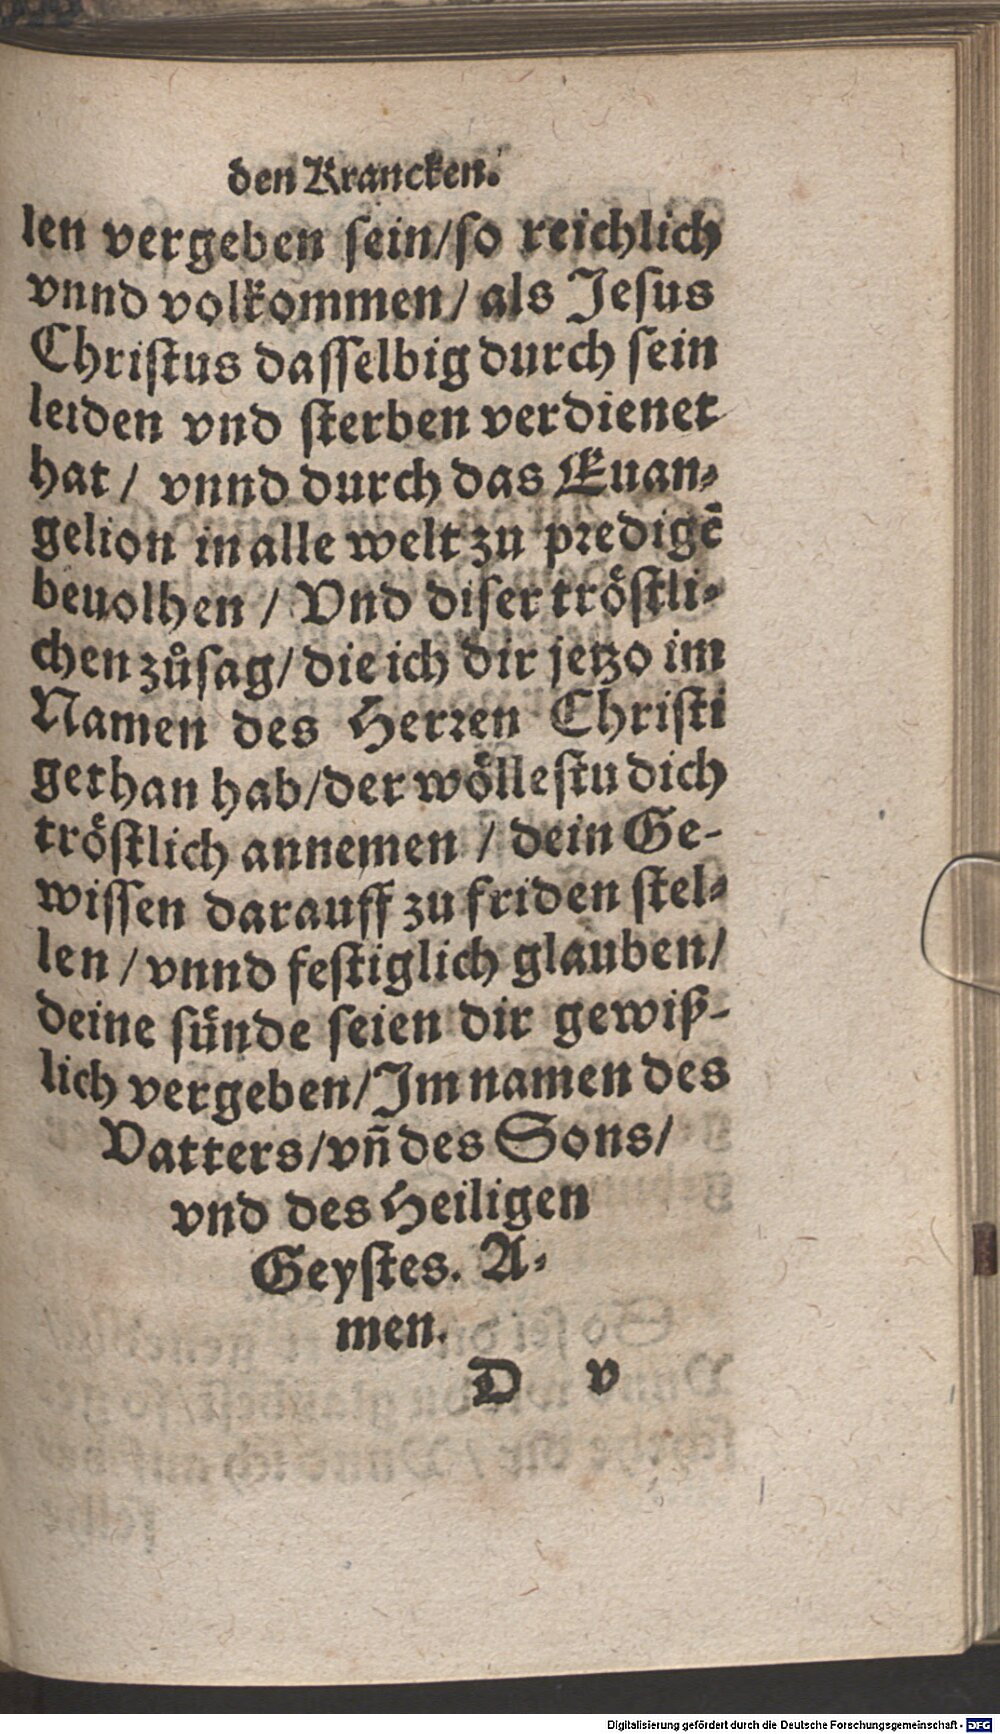 den Krancken.
len vergeben sein/so reichlich
vnnd volkommen/ als Jesus
Christus dasselbig durch sein
leiden vnd sterben verdienet
hat/ vnnd durch das Euan-
gelion in alle welt zu predigẽ
beuolhen / Vnd diser tröstli-
chen zůsag/ die ich dir jetzo im
Namen des Herren Christi
gethan hab/der wöllestu dich
tröstlich annemen / dein Ge-
wissen darauff zu friden stel-
len / vnnd festiglich glauben/
deine sünde seien dir gewiß-
lich vergeben/Im namen des
Vatters/vñ des Sons/
vnd des Heiligen
Geystes. A-
men.
D v
Digitalisierung gefördert durch die Deutsche Forschungsgemeinschaft - DFG